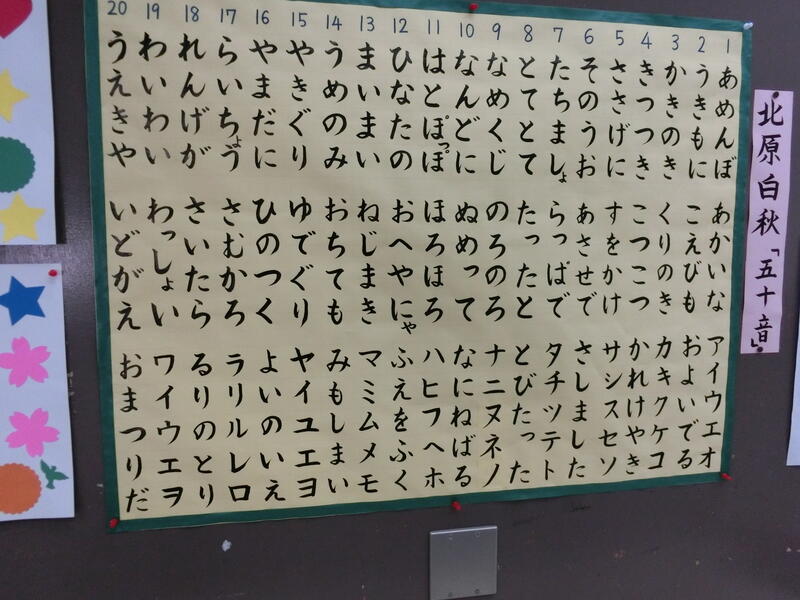 北原白秋「五十音」
1 あめんぼ あかいな アイウエオ
2 うきもに こえびも およいでる
3 かきのき くりのき カキクケコ
4 きつつき こつこつ かれけやき
5 ささげに すをかけ サシスセソ
6 そのうお あさせで さしました
7 たちましょ らっぱで タチツテト
8 とてとて たったと とびたった
9 なめくじ のろのろ ナニヌネノ
10 なんどに ぬめって なにねばる
11 はとぽっぽ ほろほろ ハヒフヘホ
12 ひなたの おへやにゃ ふえをふく
13 まいまい ねじまき マミムメモ
14 うめのみ おちても みもしまい
15 やきぐり ゆでぐり ヤイユエヨ
16 やまだに ひのつく よいのいえ
17 らいちょう さむかろ ラリルレロ
18 れんげが さいたら るりのとり
19 わいわい わっしょい ワイウエヲ
20 うえきや いどがえ おまつりだ